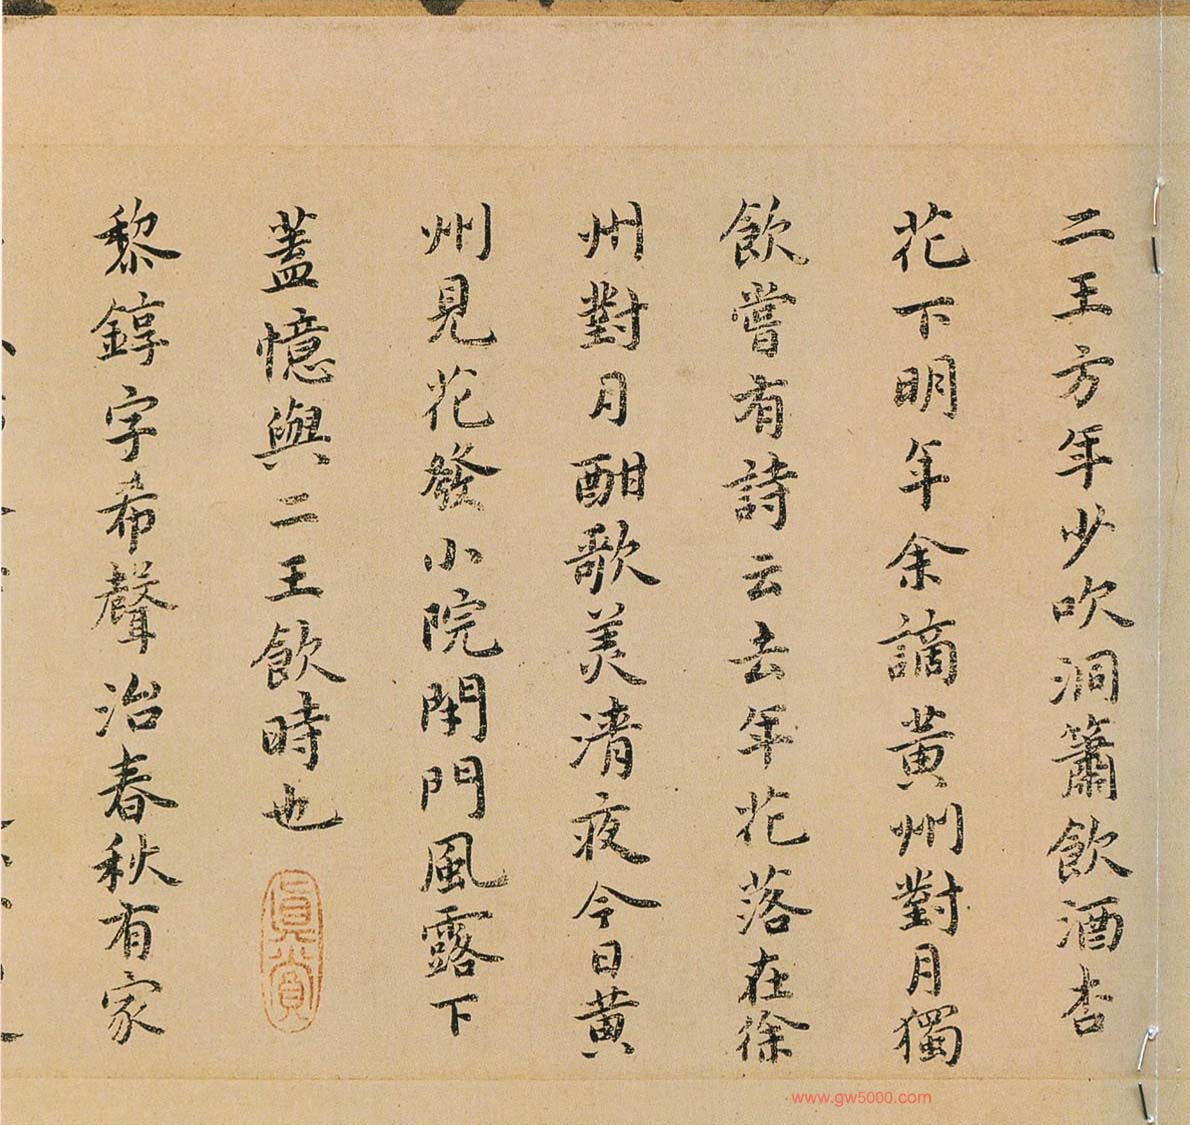 二王方年少吹洞簫飲酒杏
花下明年余謫黃州對月獨
飲嘗有詩云去年花落在徐
州對月酣歌美清夜今日黃
州見花發小院閉門風露下
蓋憶與二王飲時也
真賞
黎錞字希聲治春秋有家
www.gw5000.com